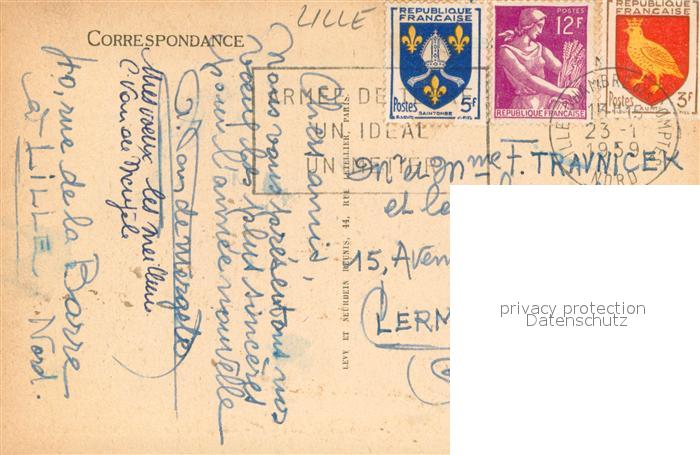 LILLE
CORRESPONDANCE
Chers amis,
Nous vous présentons nos
vœux les plus sincères
pour l'année nouvelle
Meilleurs
40, rue de la Barre
à LILLE
Nord.
REPUBLIQUE FRANÇAISE
Postes 5F
SAINTONGE
POSTES
12F
REPUBLIQUE FRANÇAISE
REPUBLIQUE FRANÇAISE
Postes 3F
AUNIS
ARMEE DE TERRE
UN IDEAL
UN METIER
23-1
1959
NORD
LEVY ET NEURDEIN REUNIS, 44, RUE LETELLIER, PARIS
Mr et Mme F. TRAVNICEK
et le
15, Aven
CLERM
privacy protection
Datenschutz